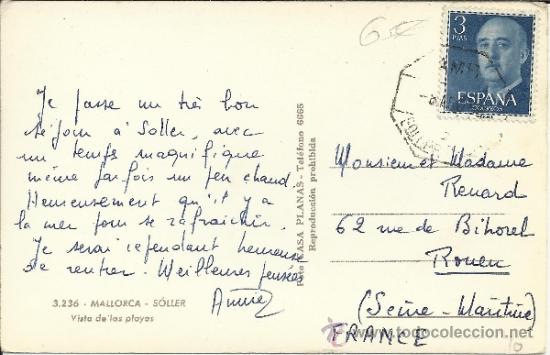 Je passe un très bon
séjour à Soller, avec
un temps magnifique
même parfois un peu chaud.
Heureusement qu'il y a
la mer pour se rafraichir.
Je serai cependant heureuse
de rentrer. Meilleures pensées
Annie
3.236 - MALLORCA - SÓLLER
Vista de las playas
Foto CASA PLANAS - Teléfono 6665
Reproducción prohibida
6€
3
PTAS
ESPAÑA
CORREOS
Monsieur et Madame
Renard
62 rue de Bihorel
Rouen
(Seine-Maritime)
FRANCE
todocoleccion.net